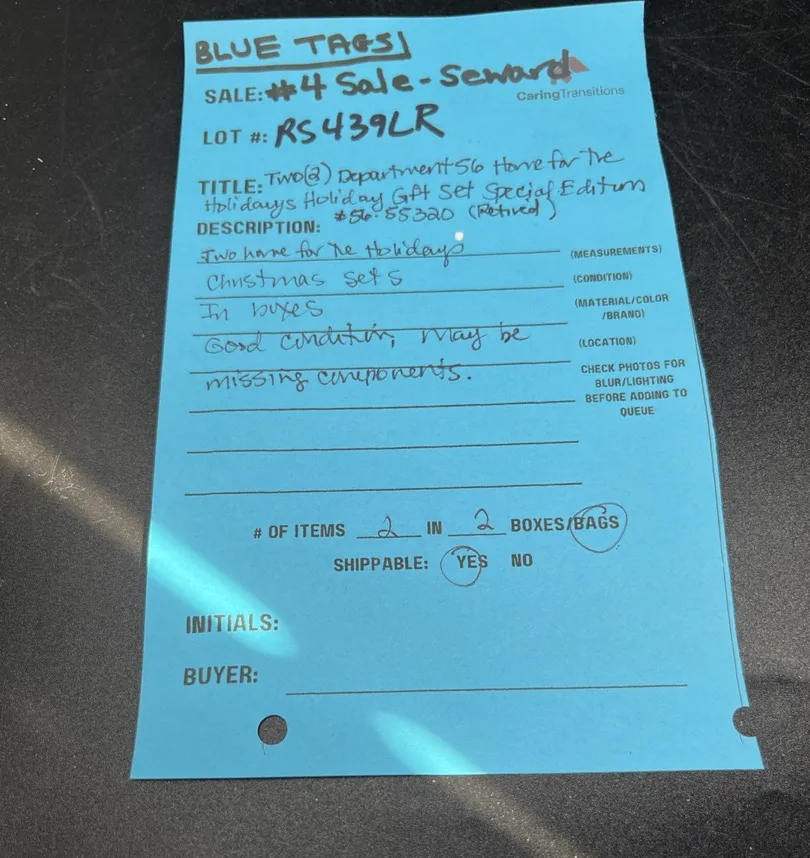 BLUE TAGS
SALE: #4 Sale - Seward
CaringTransitions
LOT #: RS439LR
TITLE: Two(2) Department 56 Home for The
Holidays Holiday Gift Set Special Edition
#56.55320 (Retired)
DESCRIPTION:
Two home for The Holidays
(MEASUREMENTS)
Christmas sets
(CONDITION)
In boxes
(MATERIAL/COLOR
/BRAND)
Good condition, may be
(LOCATION)
missing components.
CHECK PHOTOS FOR
BLUR/LIGHTING
BEFORE ADDING TO
QUEUE
# OF ITEMS 2 IN 2 BOXES/BAGS
SHIPPABLE: YES NO
INITIALS:
BUYER: